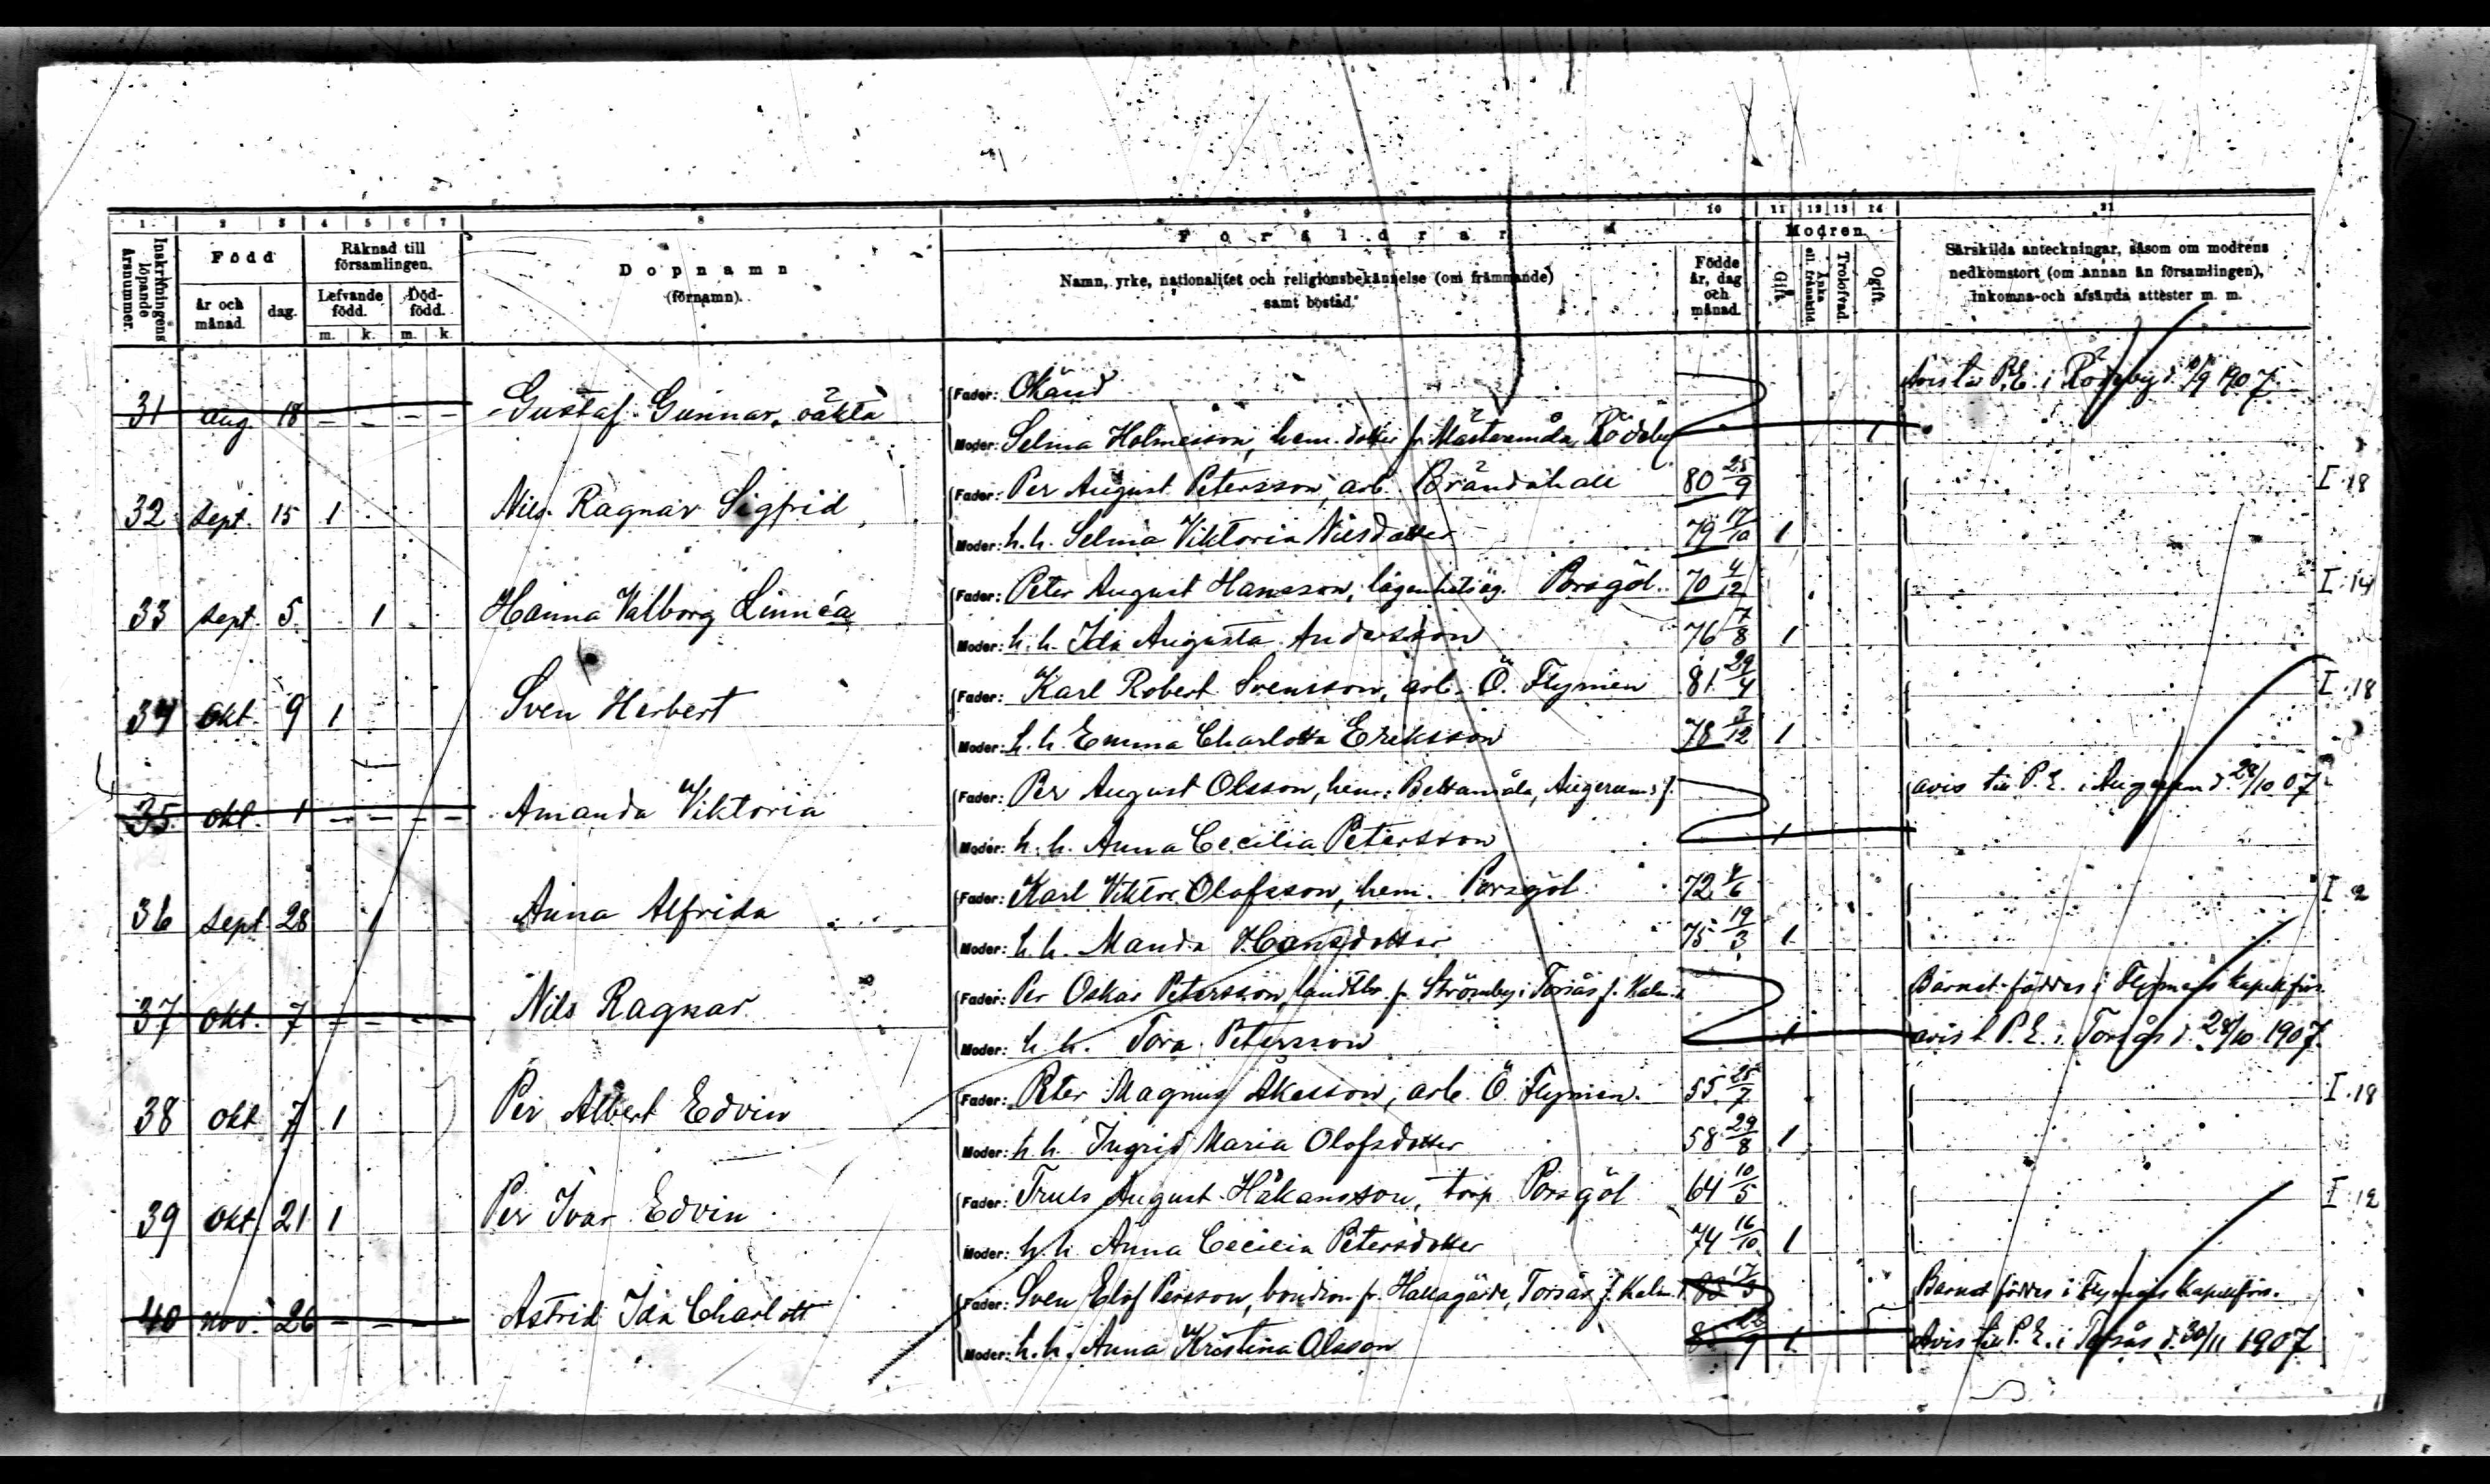 1 2 3 4 5 6 7 8 9 10 11 12 13 14 21
Inskrifningens löpande årsnummer.
Född
år och månad.
dag.
Räknad till församlingen.
Lefvande född.
Död-född.
m. k. m. k.
Dopnamn
(förnamn).
Föräldrar
Namn, yrke, nationalitet och religionsbekännelse (om främmande)
samt bostad.
Födde år, dag och månad.
Modren
Gift.
Änka ell. frånskild.
Trolofvad.
Ogift.
Särskilda anteckningar, såsom om modrens
nedkomstort (om annan än församlingen),
inkomna och afsända attester m. m.
Fader: Okänd
Avis till P.E. i Rödeby d. 10/9 1907.
31 aug 18 - - - - Gustaf Gunnar, oäkta
Moder: Selma Holmesson, hem. dotter fr. Mästaremåla, Rödeby 1
Fader: Per August Petersson, arb. Brändahall 80 25/9 I.18
32 sept. 15 1 Nils Ragnar Sigfrid
Moder: h. h. Selma Viktoria Nilsdotter 79 17/10 1
Fader: Peter August Hansson, lägenhetsäg. Porsgöl 70 4/12 I.14
33 sept. 5. 1 Hanna Valborg Linnéa
Moder: h. h. Ida Augusta Andersson 76 7/8 1
Fader: Karl Robert Svensson, arb. Ö. Flymen 81 29/4 I.18
34 Okt. 9 1 Sven Herbert
Moder: h. h. Emma Charlotta Eriksson 78 3/12 1
Fader: Per August Olsson, hem. Bettamåla, Augerums f.
avis till P. E. i Augerum d. 28/10 07
35. okt. 1 - - - - Amanda Viktoria
Moder: h. h. Anna Cecilia Petersson 1
Fader: Karl Viktor Olofsson, hem. Porsgöl 72 I 2
36 sept. 28 1 Anna Alfrida
Moder: h. h. Manda Hansdotter 75 19/3 1
Fader: Per Oskar Petersson, landtbr. fr. Strömby i Torsås f. Kalm. l.
Barnet föddes i Flymens kapellförs.
37 okt. 7 - - - - Nils Ragnar
Moder: h. h. Tora Petersson 1
avis t. P. E. i Torsås d. 28/10 1907.
Fader: Peter Magnus Åkesson, arb. Ö. Flymen. 55 25/7 I.18
38 okt 7 1 Per Albert Edvin
Moder: h. h. Ingrid Maria Olofsdotter 58 29/8 1
Fader: Truls August Håkansson, torp. Porsgöl 64 10/5 I.12
39 okt. 21 1 Per Ivar Edvin
Moder: h. h. Anna Cecilia Petersdotter 74 16/10 1
Fader: Sven Elof Persson, bondson fr. Hallagärde, Torsås f. Kalm. l.
Barnet föddes i Flymens kapellförs.
40 nov. 26 - - - Astrid Ida Charlott
Moder: h. h. Anna Kristina Olsson 1
Avis till P. E. i Torsås d. 30/11 1907